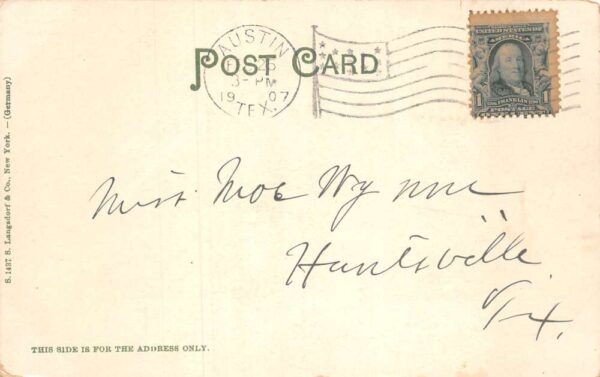 AUSTIN
3- PM
1907
TEX.
POST CARD
UNITED STATES OF
AMERICA
1
FRANKLIN
POSTAGE
Miss Moe Wynne
Huntsville
Tx.
S. 1437 S. Langsdorf & Co., New York. — (Germany)
THIS SIDE IS FOR THE ADDRESS ONLY.